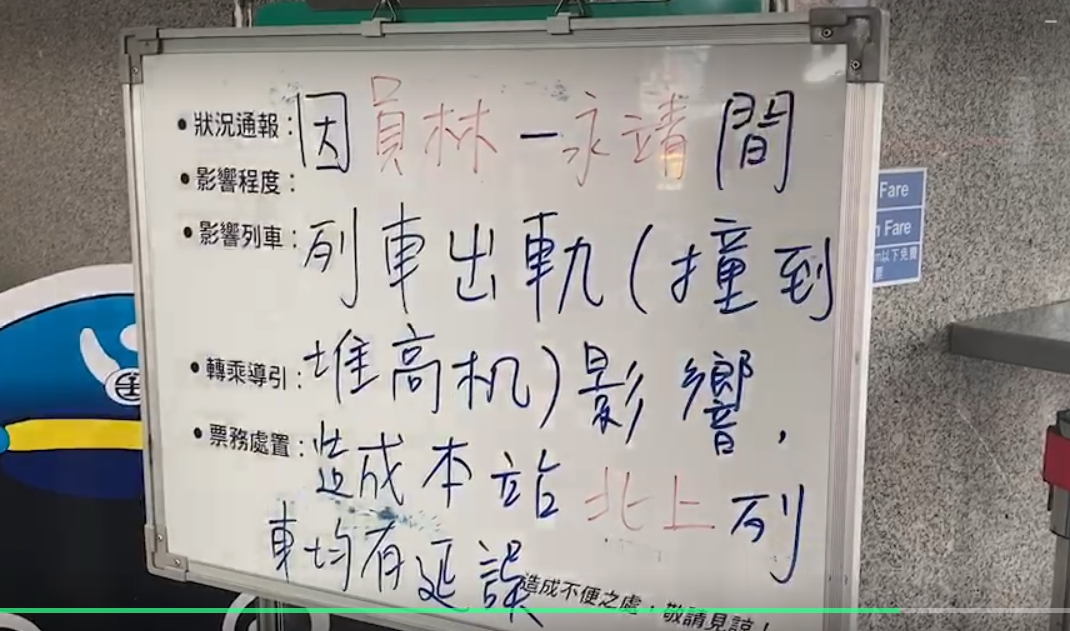 狀況通報：因員林－永靖間
影響程度：
影響列車：列車出軌(撞到
轉乘導引：堆高机)影響，
票務處置：造成本站北上列
車均有延誤
造成不便之處，敬請見諒！
Fare
n Fare
m以下免費
票